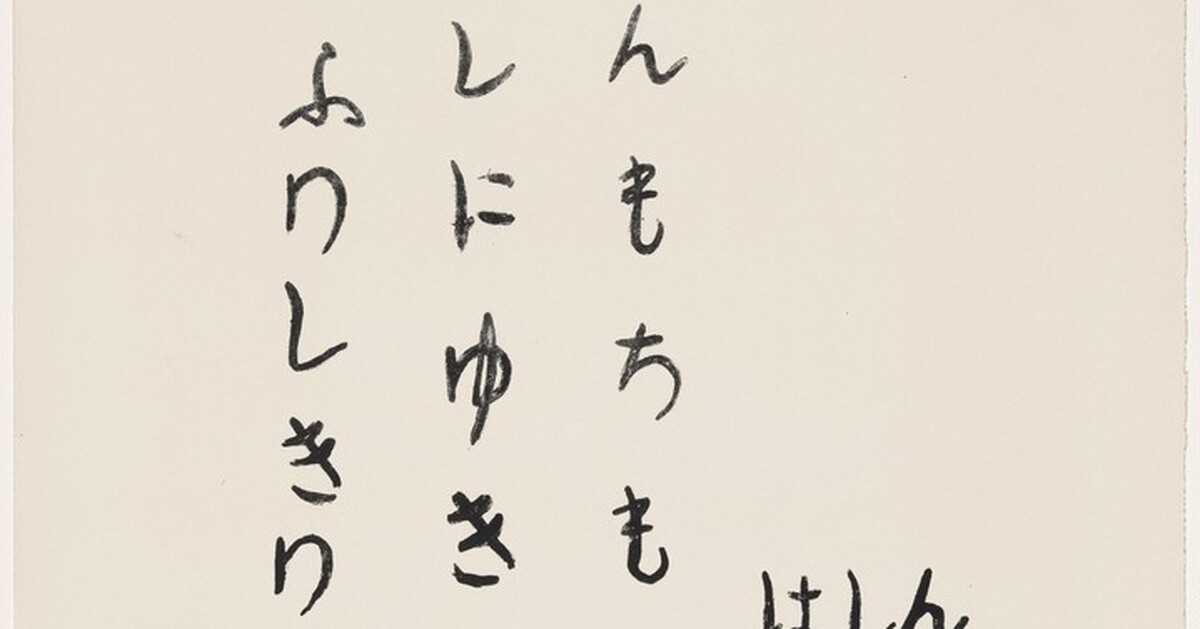 んもちも
しにゆき
ふりしきり